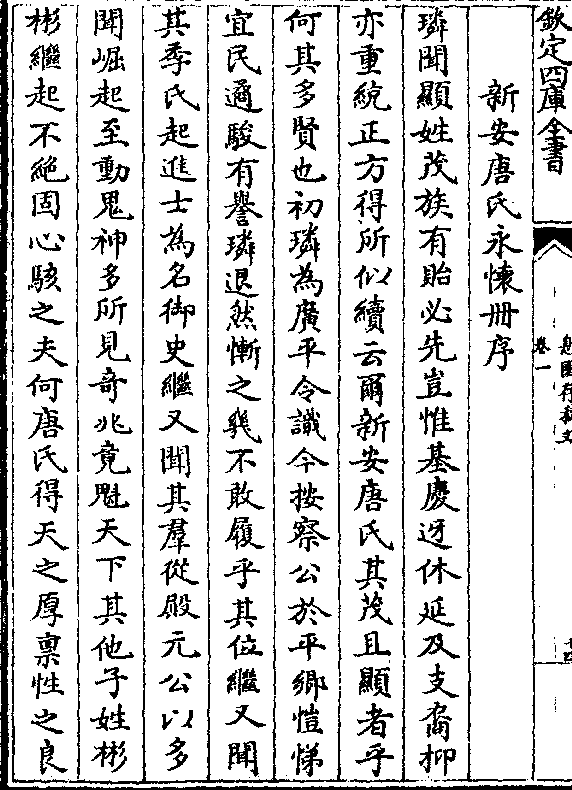 欽定四庫全書
卷一
新安唐氏永懷册序
璘聞顯姓茂族有貽必先豈惟基慶迓休延及支裔抑
亦重統正方得所似續云爾新安唐氏其茂且顯者乎
何其多賢也初璘為廣平令識今按察公於平鄉愷悌
宜民遹駿有譽璘退然慚之幾不敢履乎其位繼又聞
其季氏起進士為名御史繼又聞其羣從殿元公以多
聞崛起至動鬼神多所見奇兆竟魁天下其他子姓彬
彬繼起不絶固心駭之夫何唐氏得天之厚禀性之良